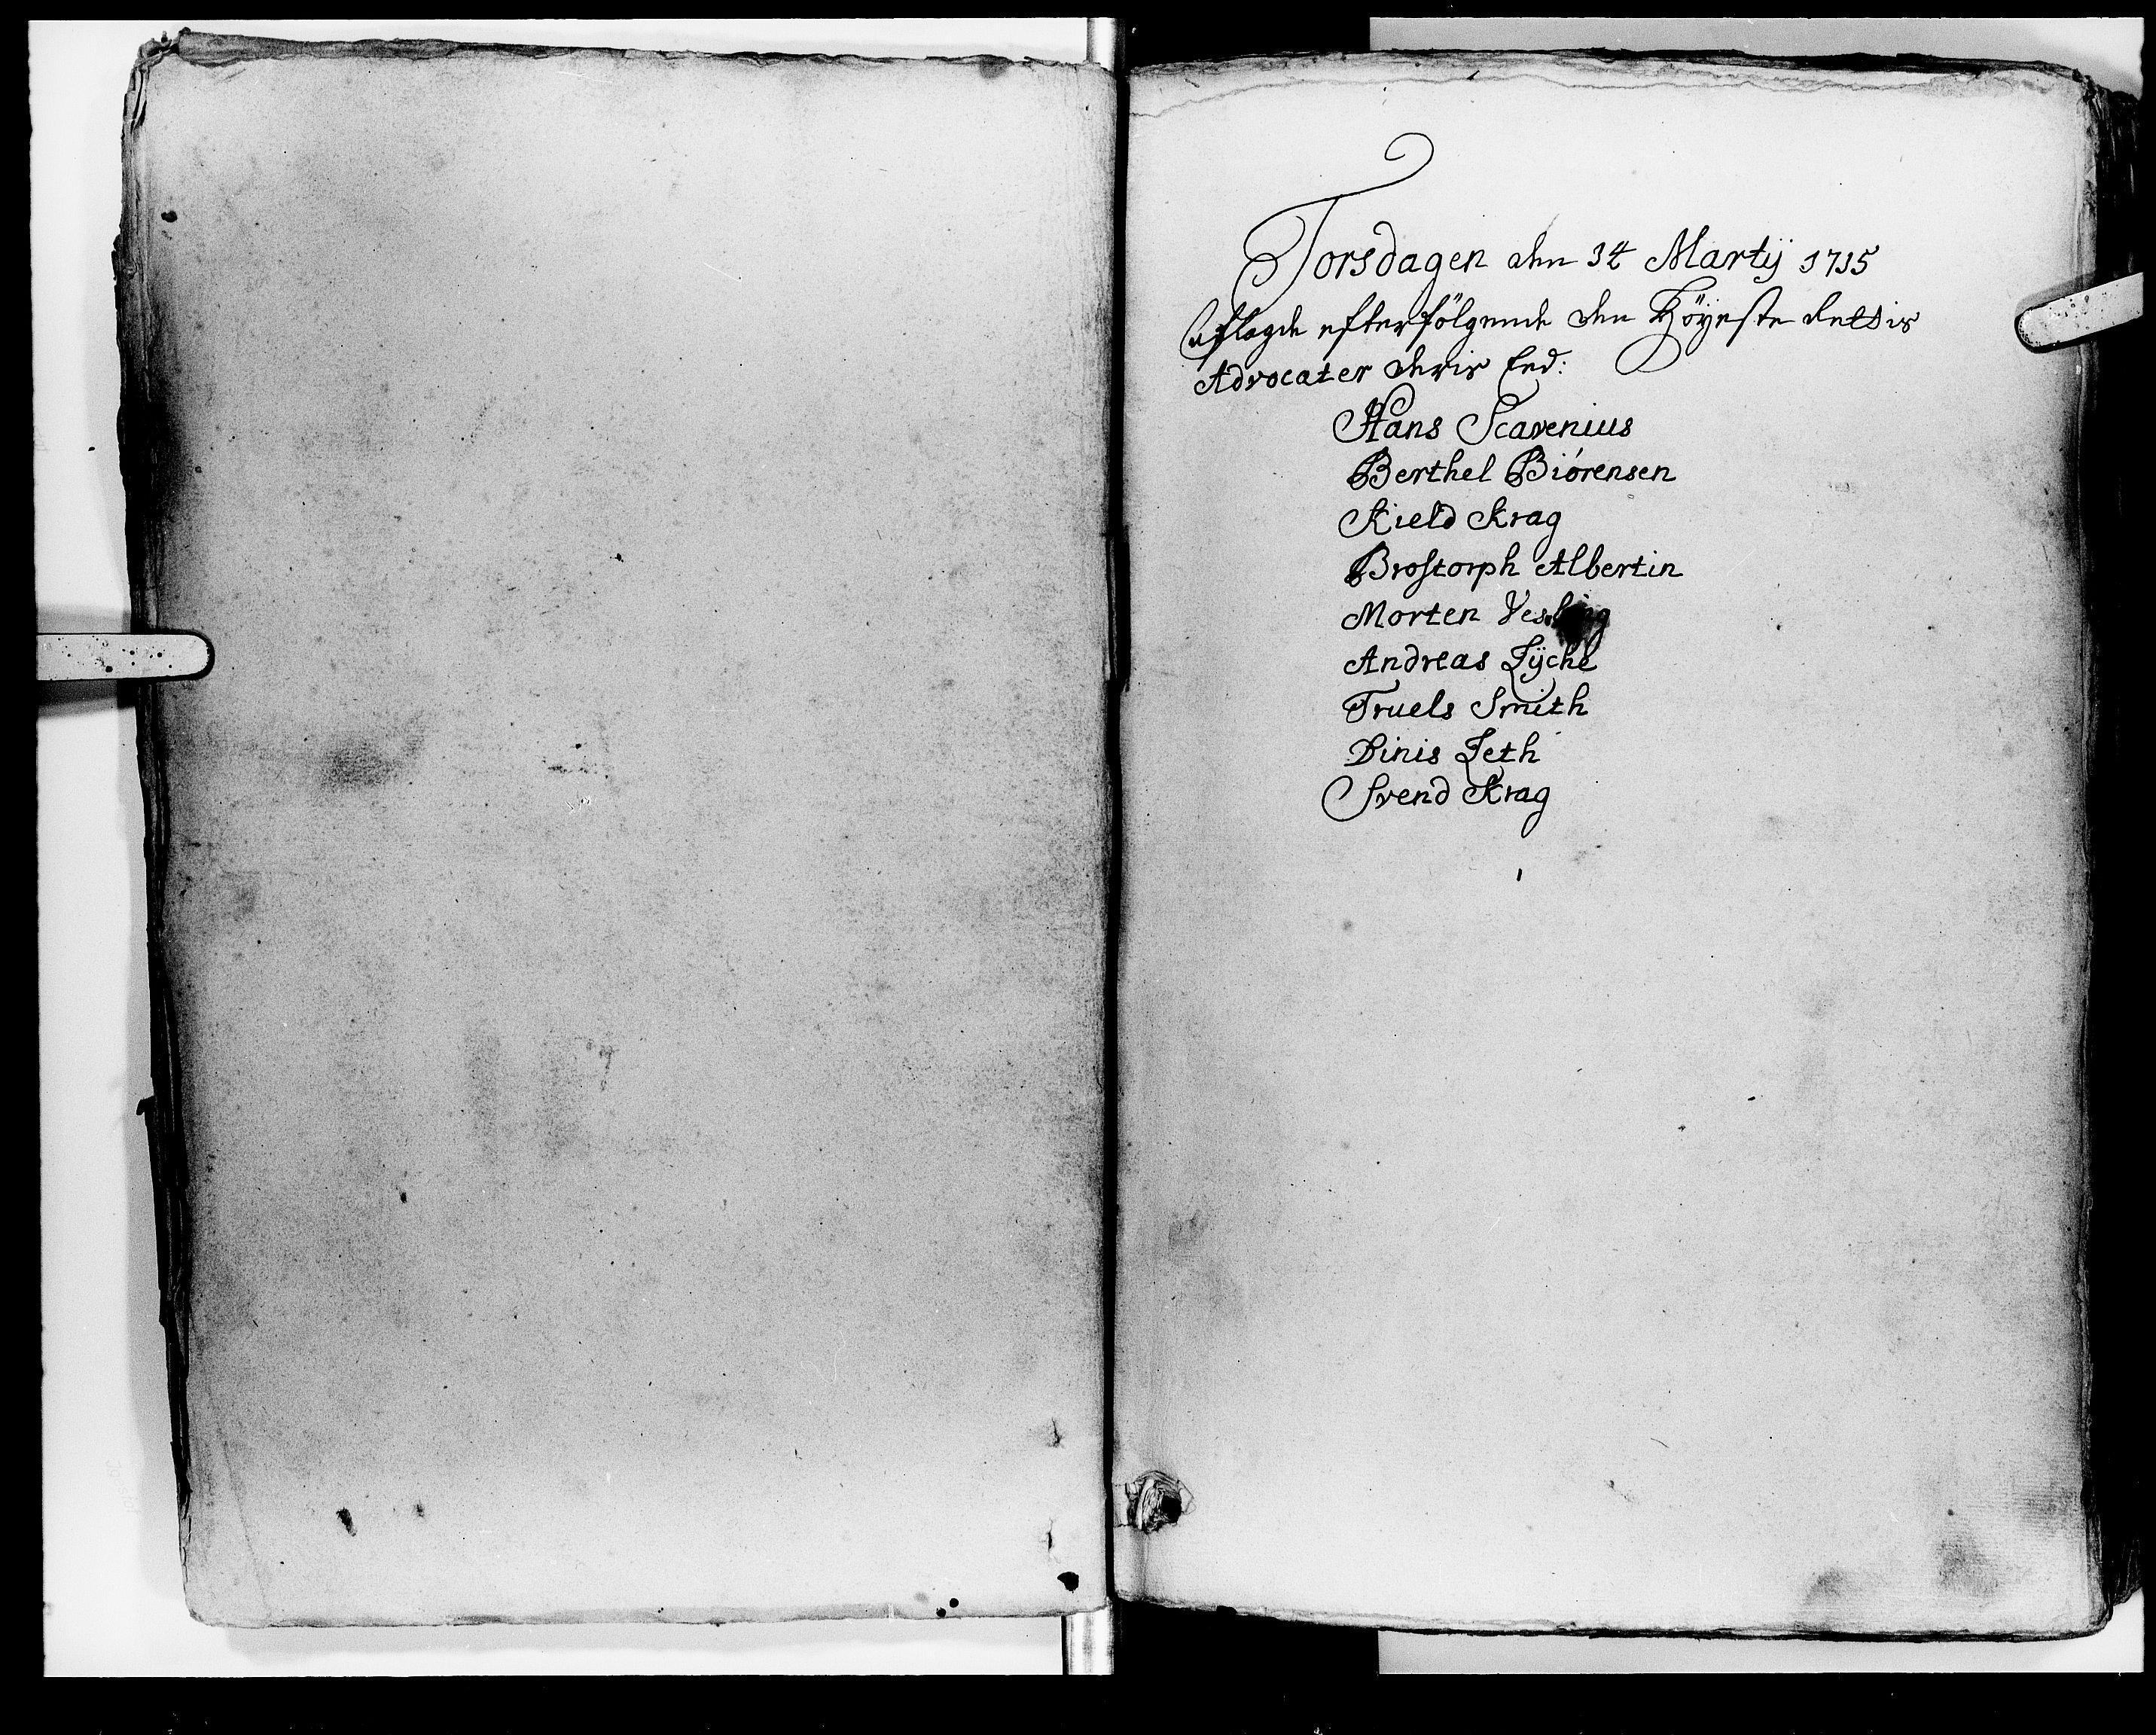 Torsdagen den 14 Martij 1715
aflagde efterfølgende den Höÿeste Rettis
Advocater deris Eed:
Hans Scavenius
Berthel Biörensen
Kield Krag
Brostorph Albertin
Morten Vesling
Andreas Lÿche
Truels Smith
Dinis Leth
Svend Krag